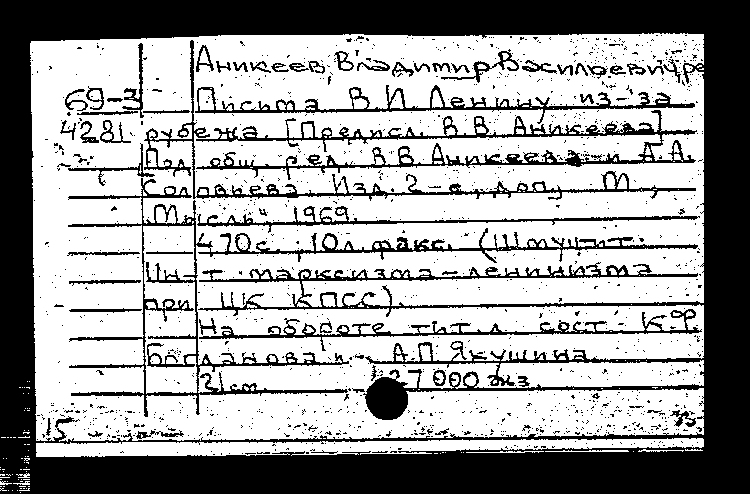 Аникеев, Владимир Васильевич, ре
69-3 Письма В.И. Ленину из-за
4281 рубежа. [Предисл. В.В. Аникеева]
Под общ. ред. В.В. Аникеева и А.А.
Соловьева. Изд. 2-е, доп. М.,
"Мысль", 1969.
470с.; 10л. факс. (Шмуцтит:
Ин-т марксизма-ленинизма
при ЦК КПСС).
На обороте тит.л. сост. К.Ф.
Богданова и А.П. Якушина.
21см. 27000 экз.
15